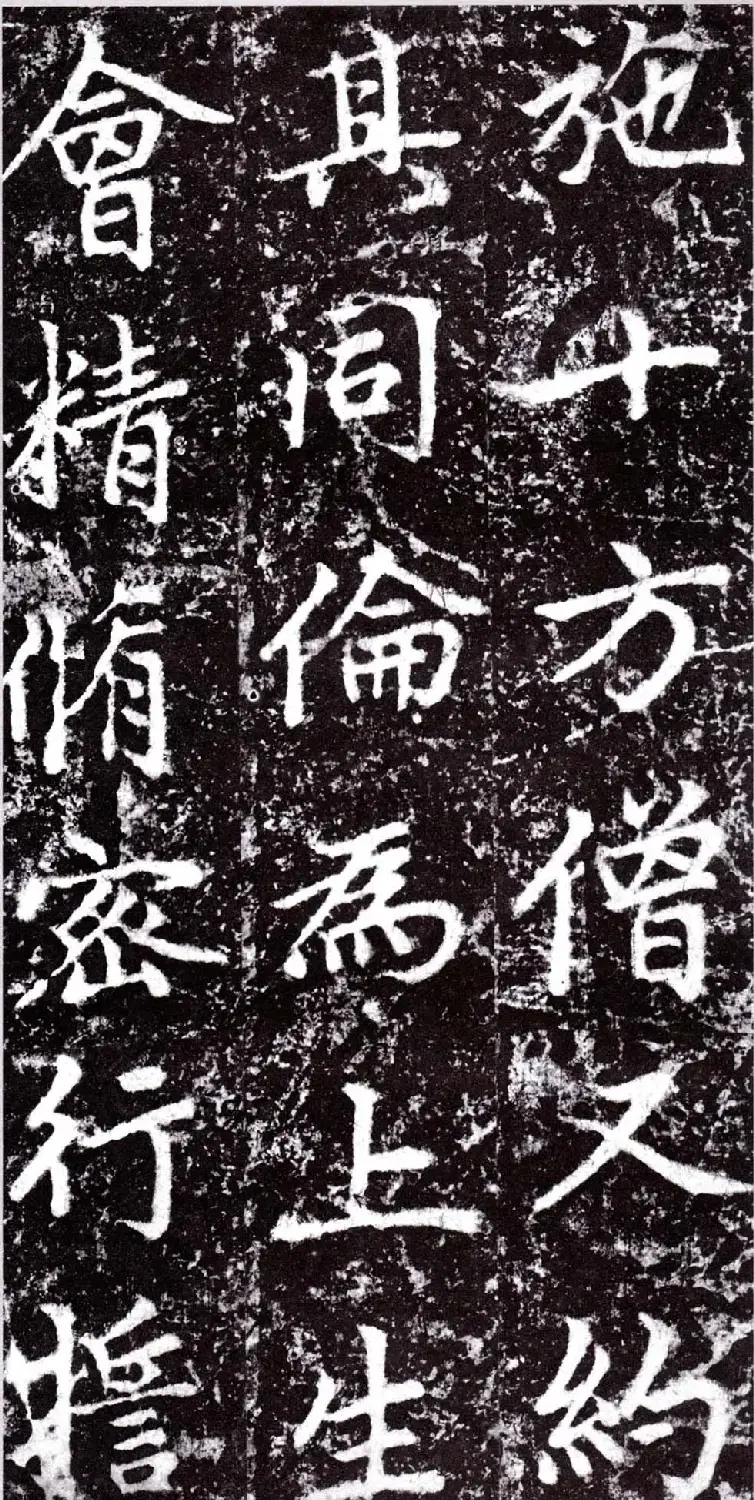 施十方僧又約
其同倫為上生
會精脩密行誓